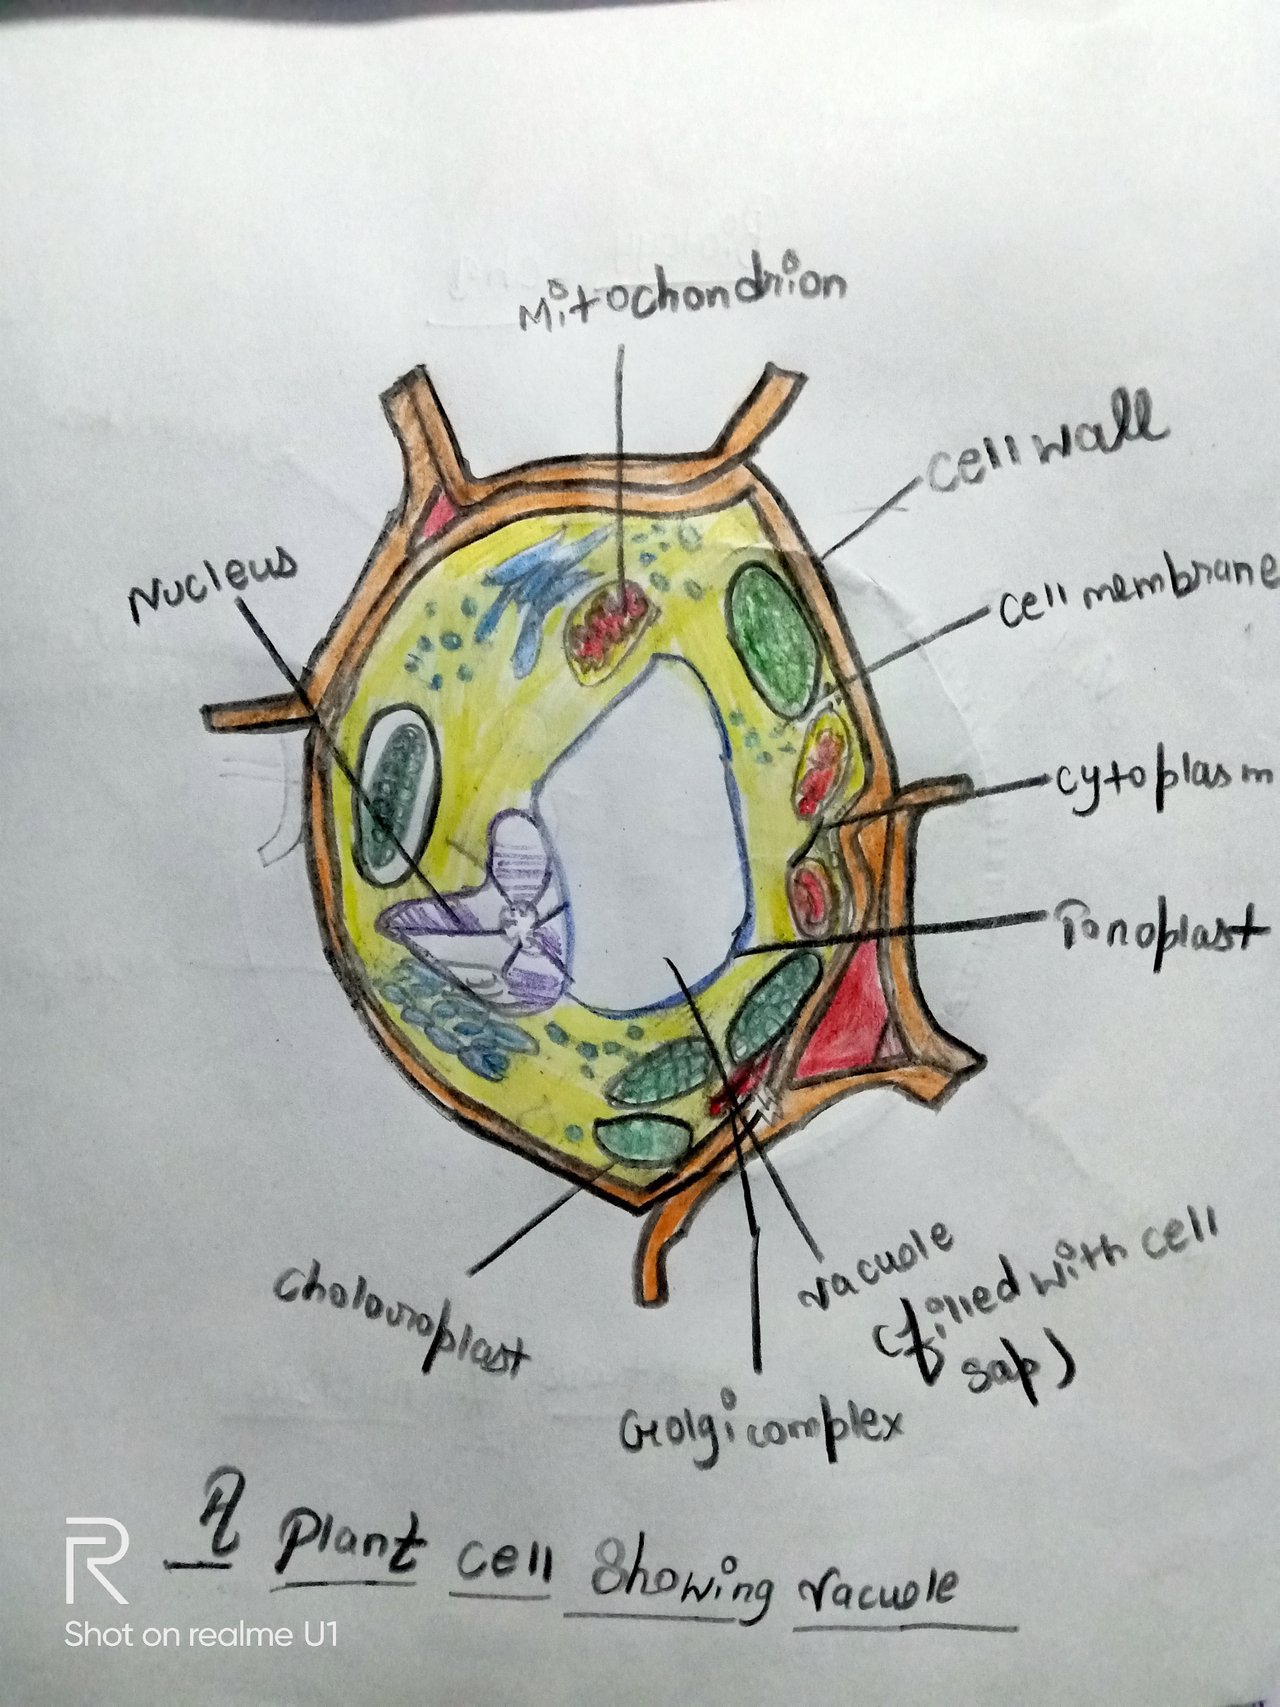 Mitochondrion
cell wall
Nucleus
cell membrane
cytoplasm
Tonoplast
vacuole
(filled with cell
sap)
Cholouroplast
Golgi complex
A plant cell Showing vacuole
R
Shot on realme U1